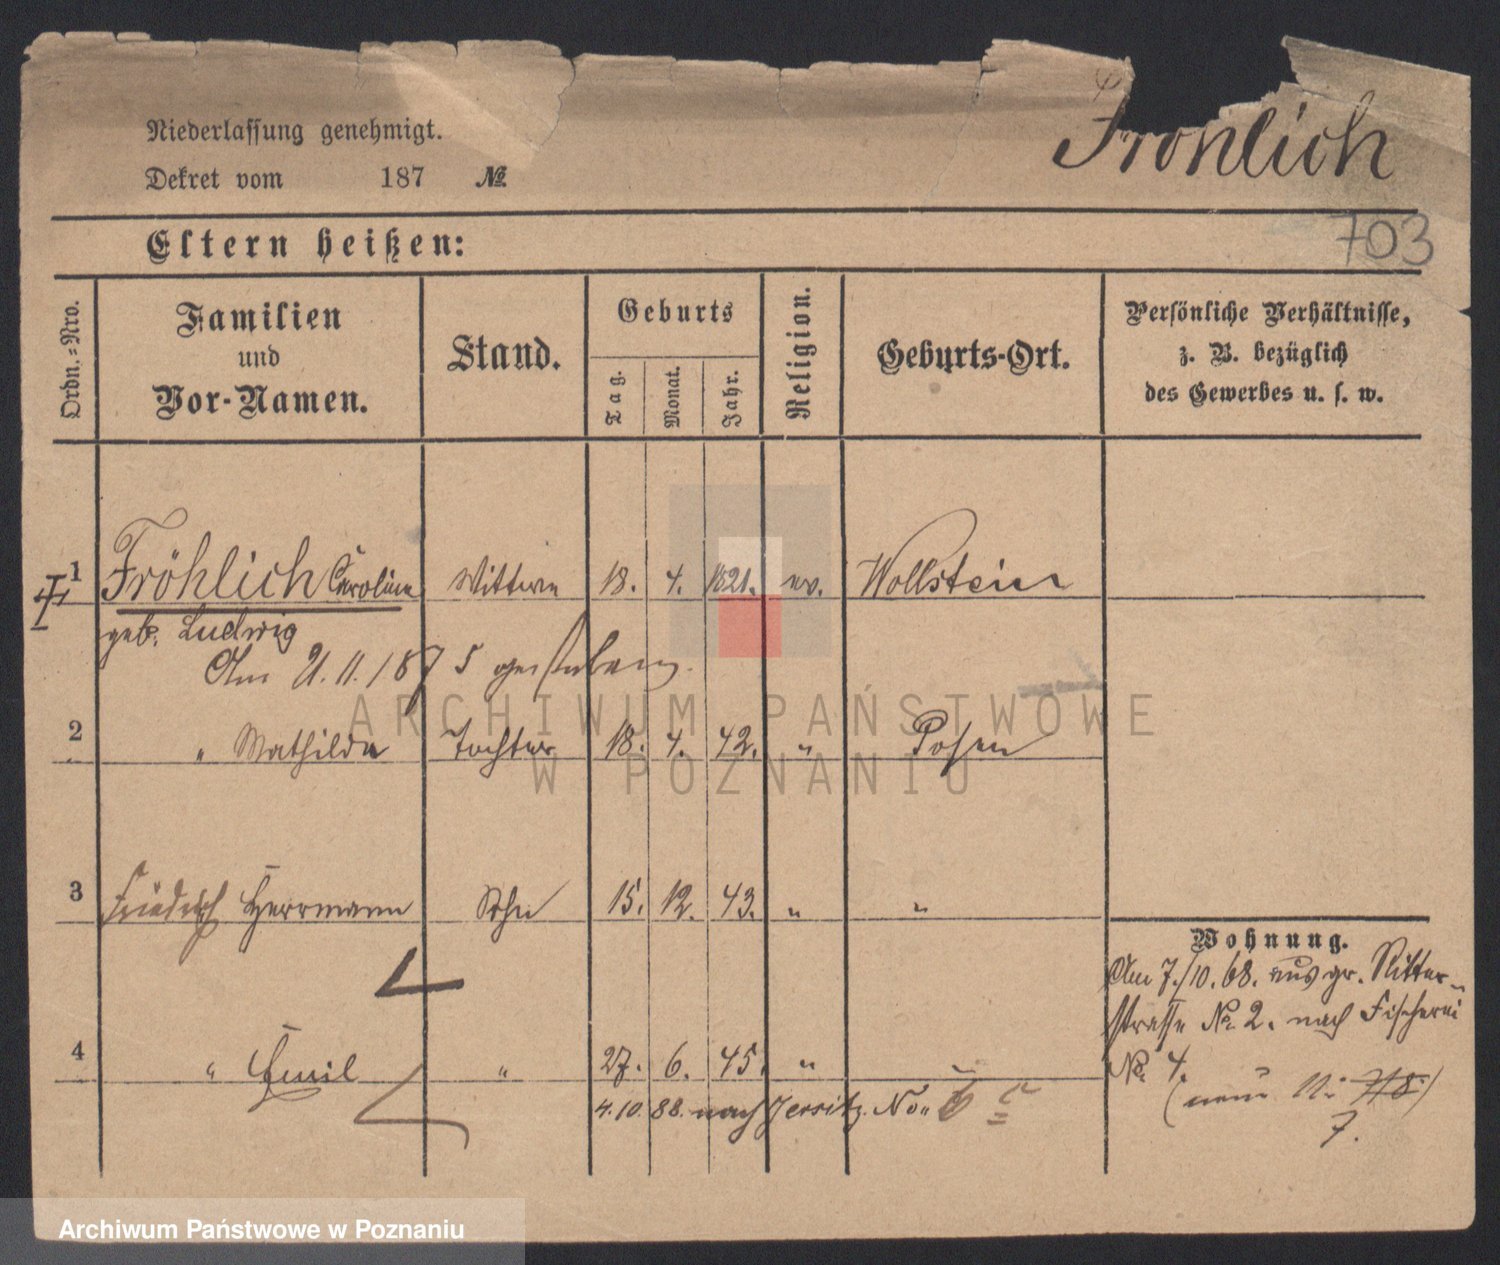 Niederlassung genehmigt.
Dekret vom 187 №
Fröhlich
703
Eltern heißen:
Ordn.=Nro.
Familien
und
Vor-Namen.
Stand.
Geburts
Tag.
Monat.
Jahr.
Religion.
Geburts-Ort.
Persönliche Verhältnisse,
z. B. bezüglich
des Gewerbes u. s. w.
1 Fröhlich Caroline Wittwe 18. 4. 1821. ev. Wollstein
geb. Ludwig
Am 21.11.1875 gestorben.
2 " Mathilde Tochter 18. 4. 42. " Posen
3 Friedrich Herrmann Sohn 15. 12. 43. " "
4 " Emil " 27. 6. 45. "
4.10.88. nach Jersitz No. 6
Wohnung.
Am 7./10.68. aus gr. Ritter-
strasse No. 2. nach Fischerei
No. 4.
(neue N: 7/8.)
7.
ARCHIWUM PAŃSTWOWE
W POZNANIU
Archiwum Państwowe w Poznaniu